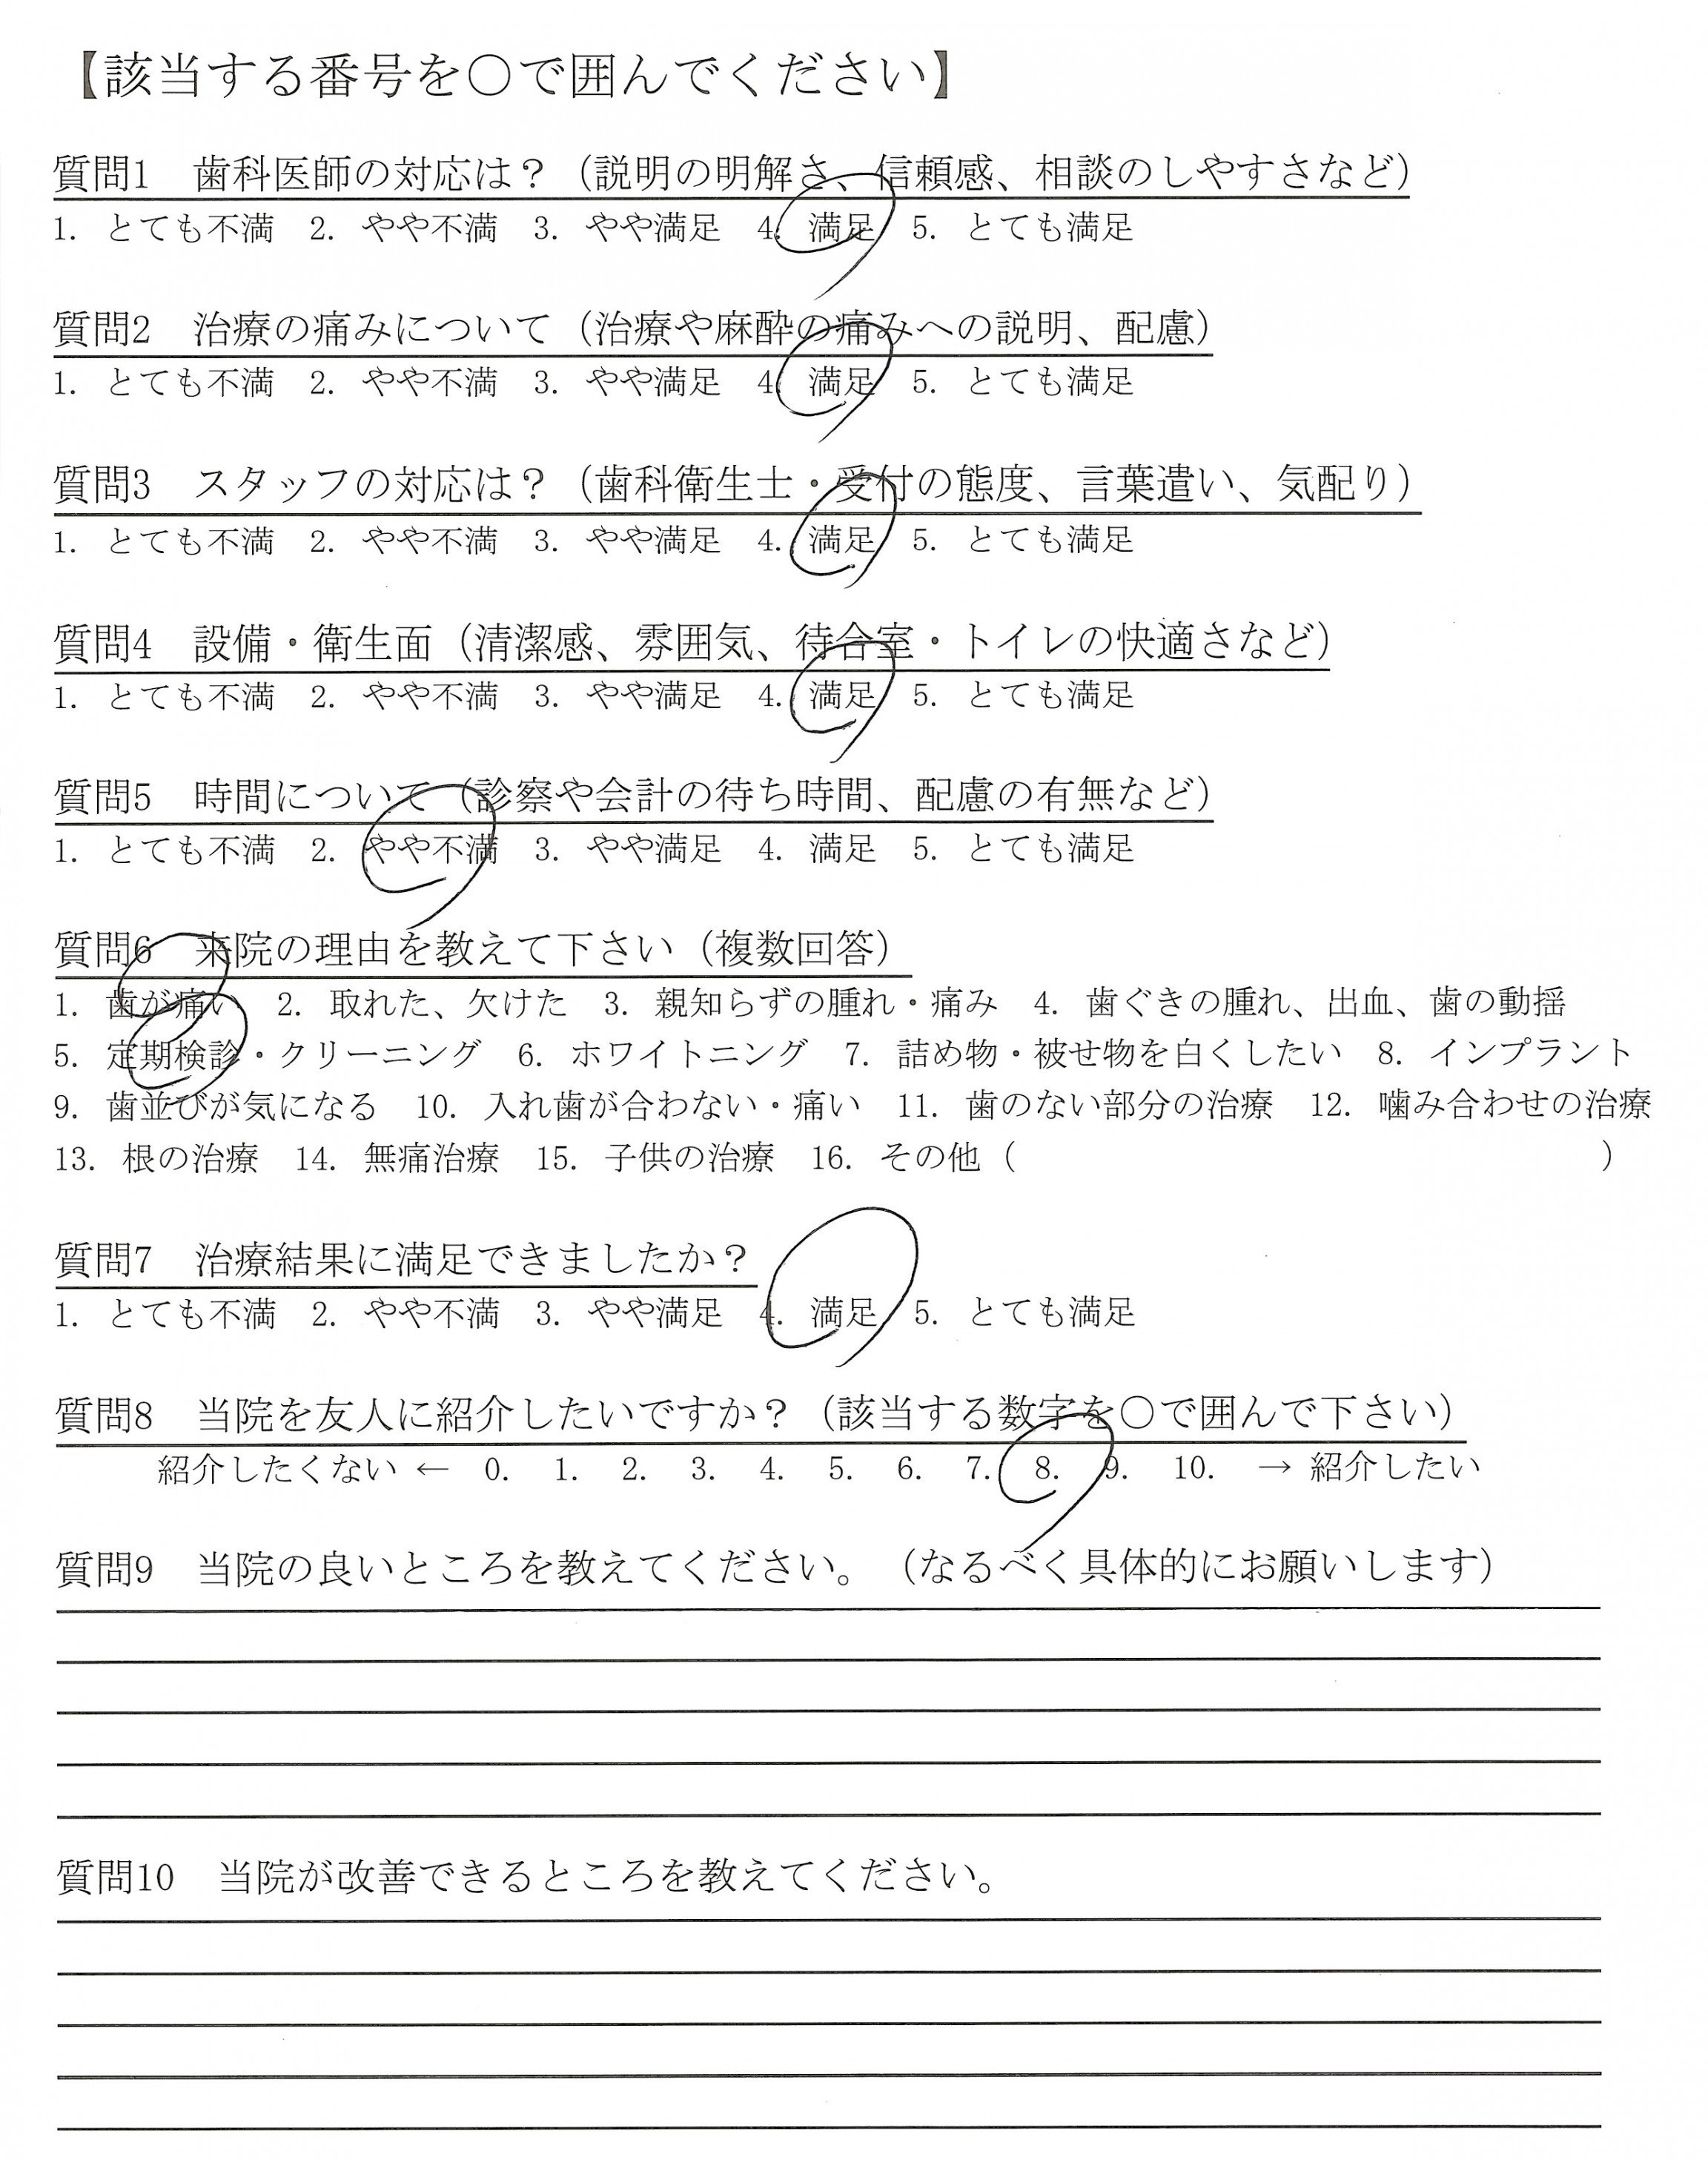 【該当する番号を○で囲んでください】
質問1　歯科医師の対応は？（説明の明解さ、信頼感、相談のしやすさなど）
1. とても不満　2. やや不満　3. やや満足　4. 満足　5. とても満足
質問2　治療の痛みについて（治療や麻酔の痛みへの説明、配慮）
1. とても不満　2. やや不満　3. やや満足　4. 満足　5. とても満足
質問3　スタッフの対応は？（歯科衛生士・受付の態度、言葉遣い、気配り）
1. とても不満　2. やや不満　3. やや満足　4. 満足　5. とても満足
質問4　設備・衛生面（清潔感、雰囲気、待合室・トイレの快適さなど）
1. とても不満　2. やや不満　3. やや満足　4. 満足　5. とても満足
質問5　時間について（診察や会計の待ち時間、配慮の有無など）
1. とても不満　2. やや不満　3. やや満足　4. 満足　5. とても満足
質問6　来院の理由を教えて下さい（複数回答）
1. 歯が痛い　2. 取れた、欠けた　3. 親知らずの腫れ・痛み　4. 歯ぐきの腫れ、出血、歯の動揺
5. 定期検診・クリーニング　6. ホワイトニング　7. 詰め物・被せ物を白くしたい　8. インプラント
9. 歯並びが気になる　10. 入れ歯が合わない・痛い　11. 歯のない部分の治療　12. 噛み合わせの治療
13. 根の治療　14. 無痛治療　15. 子供の治療　16. その他（　　　　　　　　　　　　　　　　　）
質問7　治療結果に満足できましたか？
1. とても不満　2. やや不満　3. やや満足　4. 満足　5. とても満足
質問8　当院を友人に紹介したいですか？（該当する数字を○で囲んで下さい）
紹介したくない ← 0.　1.　2.　3.　4.　5.　6.　7.　8.　9.　10.　→ 紹介したい
質問9　当院の良いところを教えてください。（なるべく具体的にお願いします）
質問10　当院が改善できるところを教えてください。